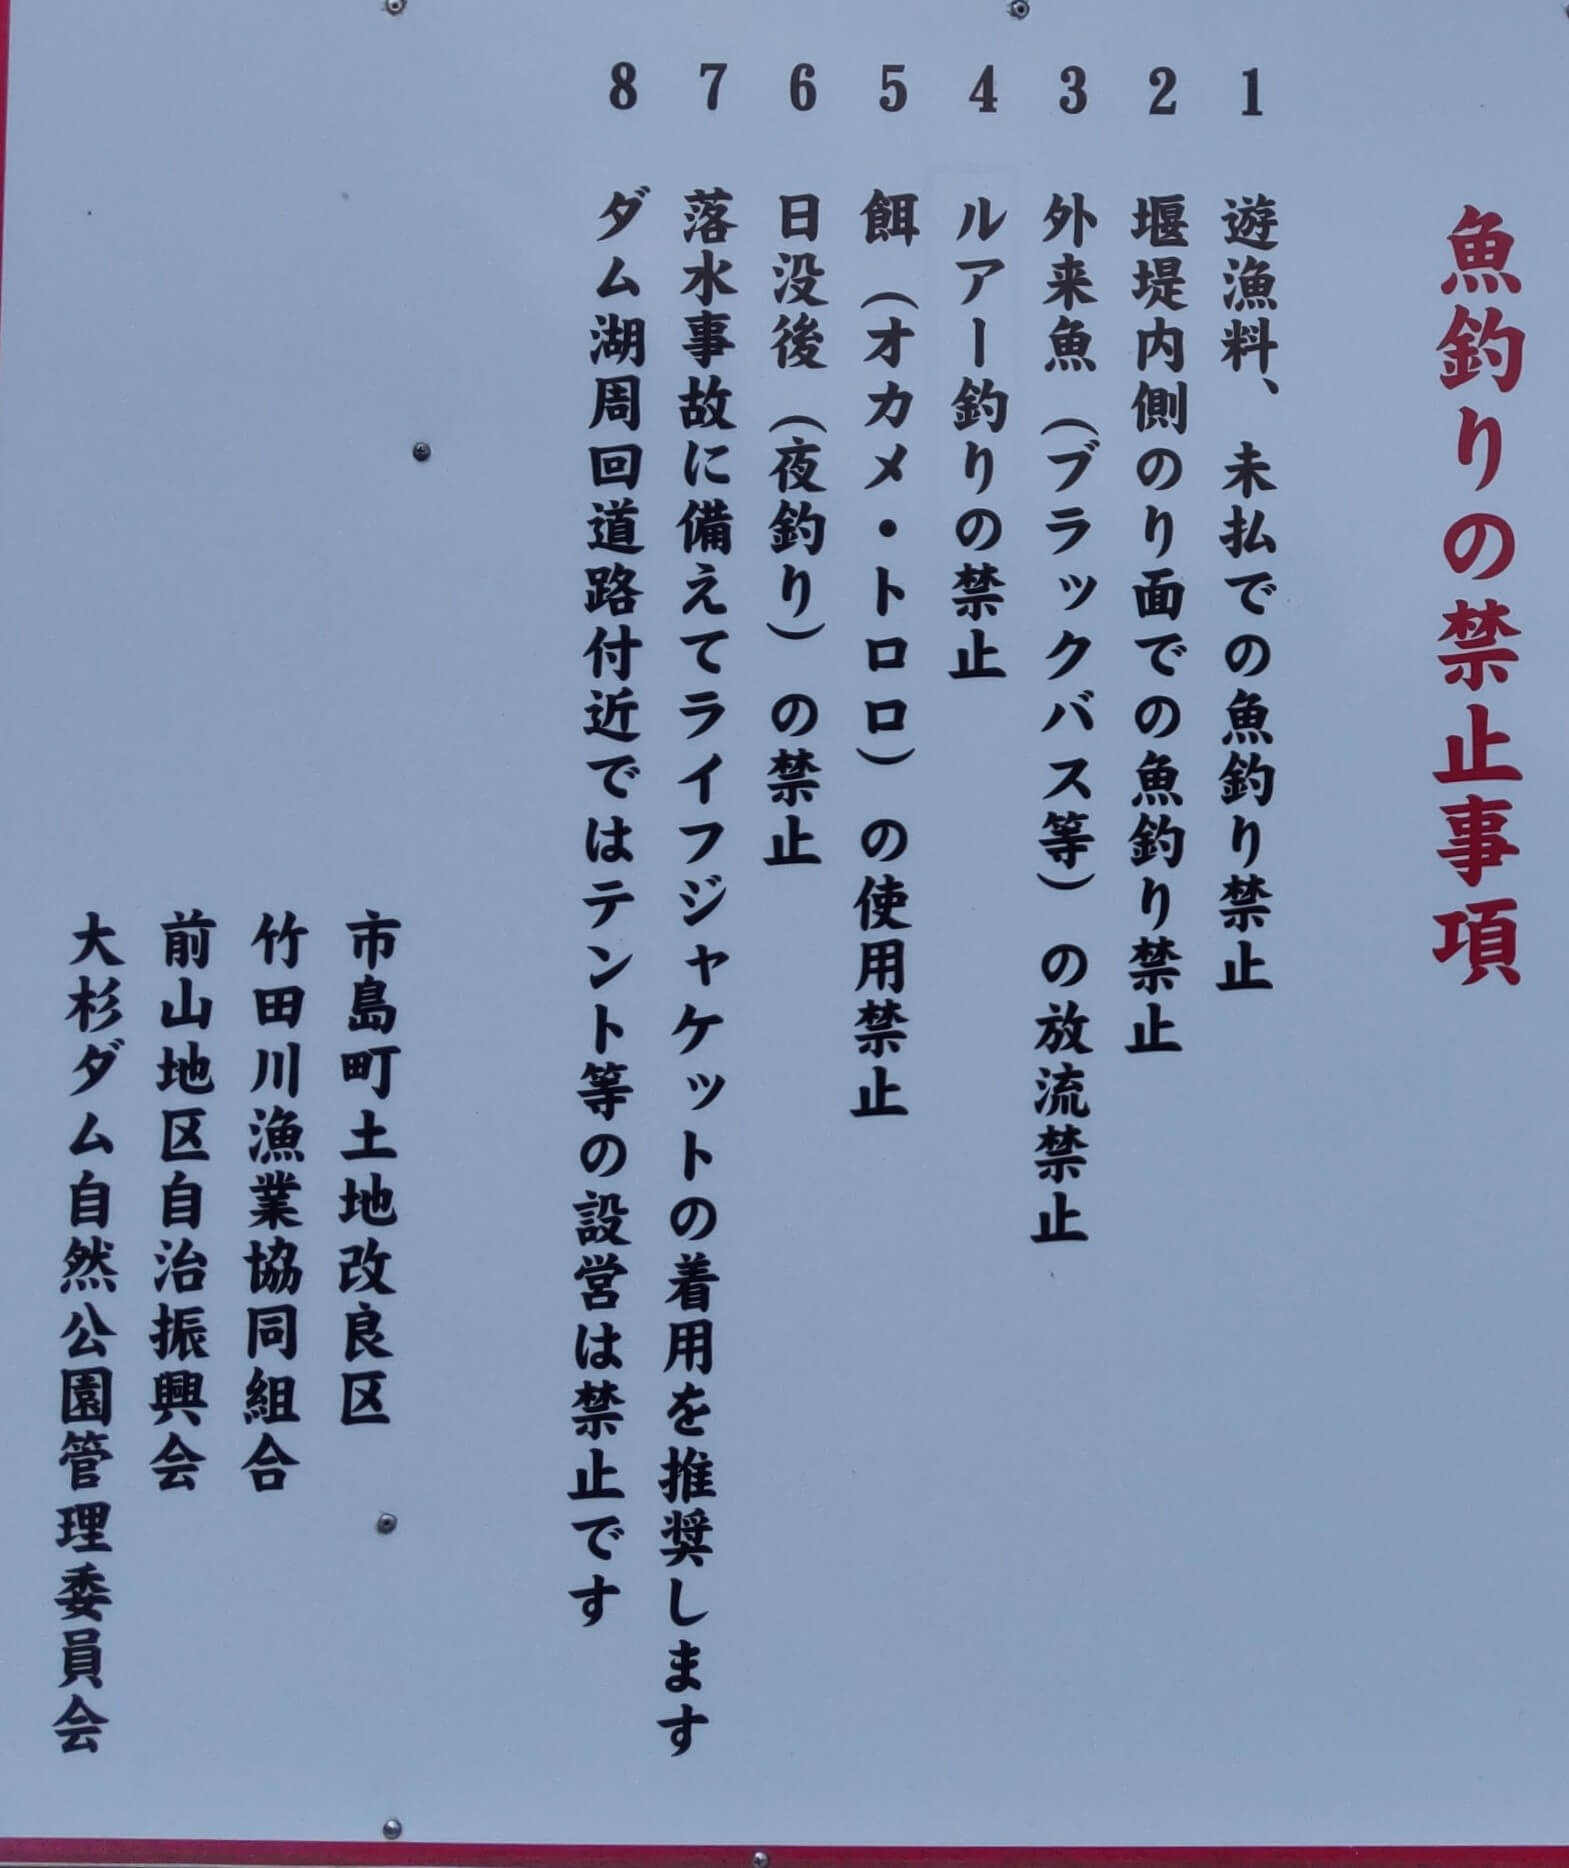 魚釣りの禁止事項
1 遊漁料、未払での魚釣り禁止
2 堰堤内側ののり面での魚釣り禁止
3 外来魚（ブラックバス等）の放流禁止
4 ルアー釣りの禁止
5 餌（オカメ・トロロ）の使用禁止
6 日没後（夜釣り）の禁止
7 落水事故に備えてライフジャケットの着用を推奨します
8 ダム湖周回道路付近ではテント等の設営は禁止です
市島町土地改良区
竹田川漁業協同組合
前山地区自治振興会
大杉ダム自然公園管理委員会